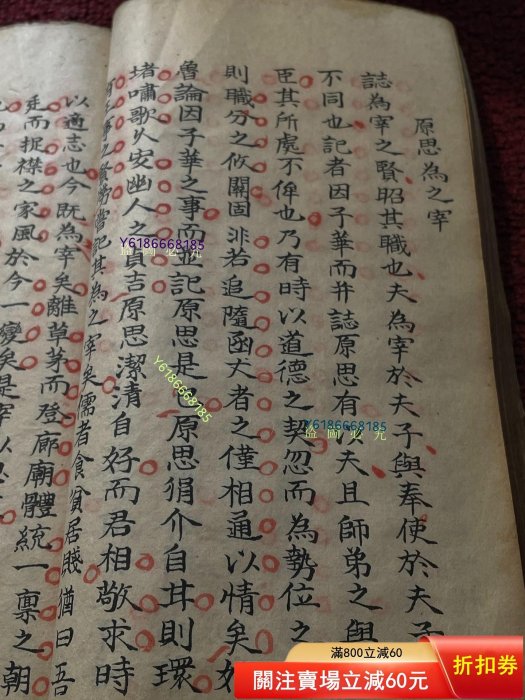 原思為之宰
誌為宰之賢昭其職也夫為宰於夫子與奉使於夫子
不同也記者因子華而并誌原思有夫且師弟之與
臣其所處不侔也乃有時以道德之契忽而為勢位之
則職分之攸關固非若追隨函丈者之僅相通以情矣
魯論因子華之事而記原思是原思狷介自甘則環
堵嘯歌以安幽人之貞吉原思潔清自好而君相敬求時
之賢嘗記其為之宰矣儒者食貧居賤猶曰吾
以適志也今既為宰矣離草茅而登廊廟體統一稟之朝
廷而捉襟之家風於今一變矣是宰以
Y6186668185
盜圖必究
Y6186668185
Y6186668185
盜圖必究
滿800立減60
關注賣場立減60元
折扣券